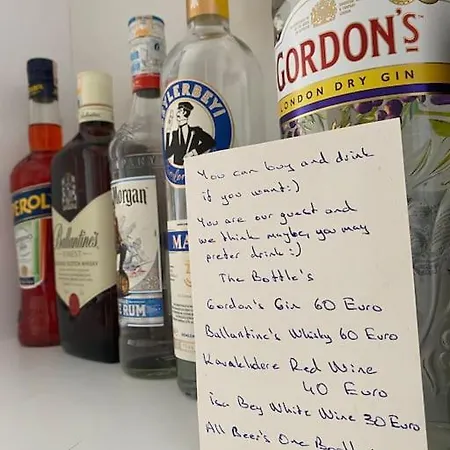 GORDON'S
LONDON DRY GIN
YLERBEYİ
Morgan
RUM
MA
EROL
Ballantine's
FINEST
You can buy and drink
if you want:)
You are our guest and
we think maybe, you may
preter drink:)
The Bottle's
Gordon's Gin 60 Euro
Ballantine's Whisky 60 Euro
Kavaklıdere Red Wine
40 Euro
Bey White Wine 30 Euro
All Beer's One